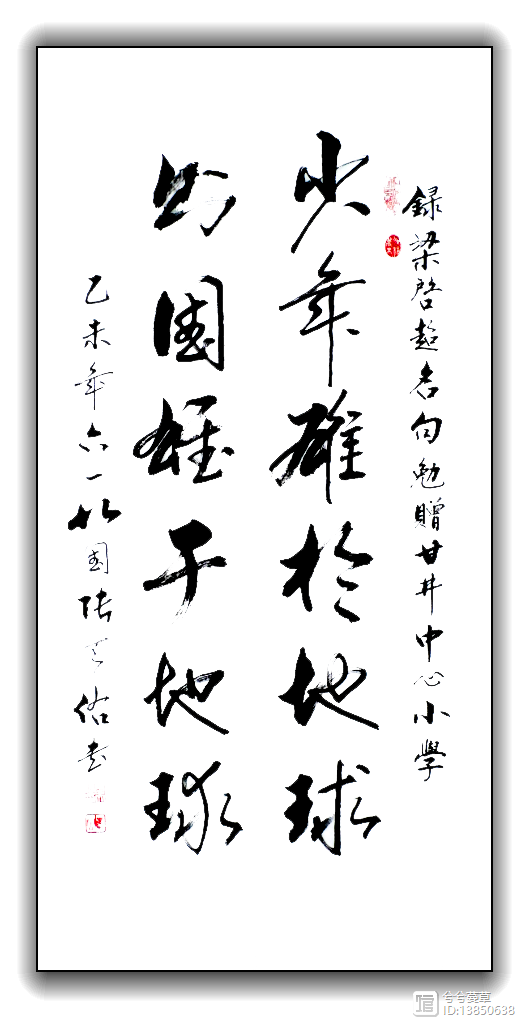 録梁啓超名句勉贈甘井中心小學
少年雄於地球
則國雄于地球
乙未年六一於國陆天佑书
兮兮蔓草
ID:13850638